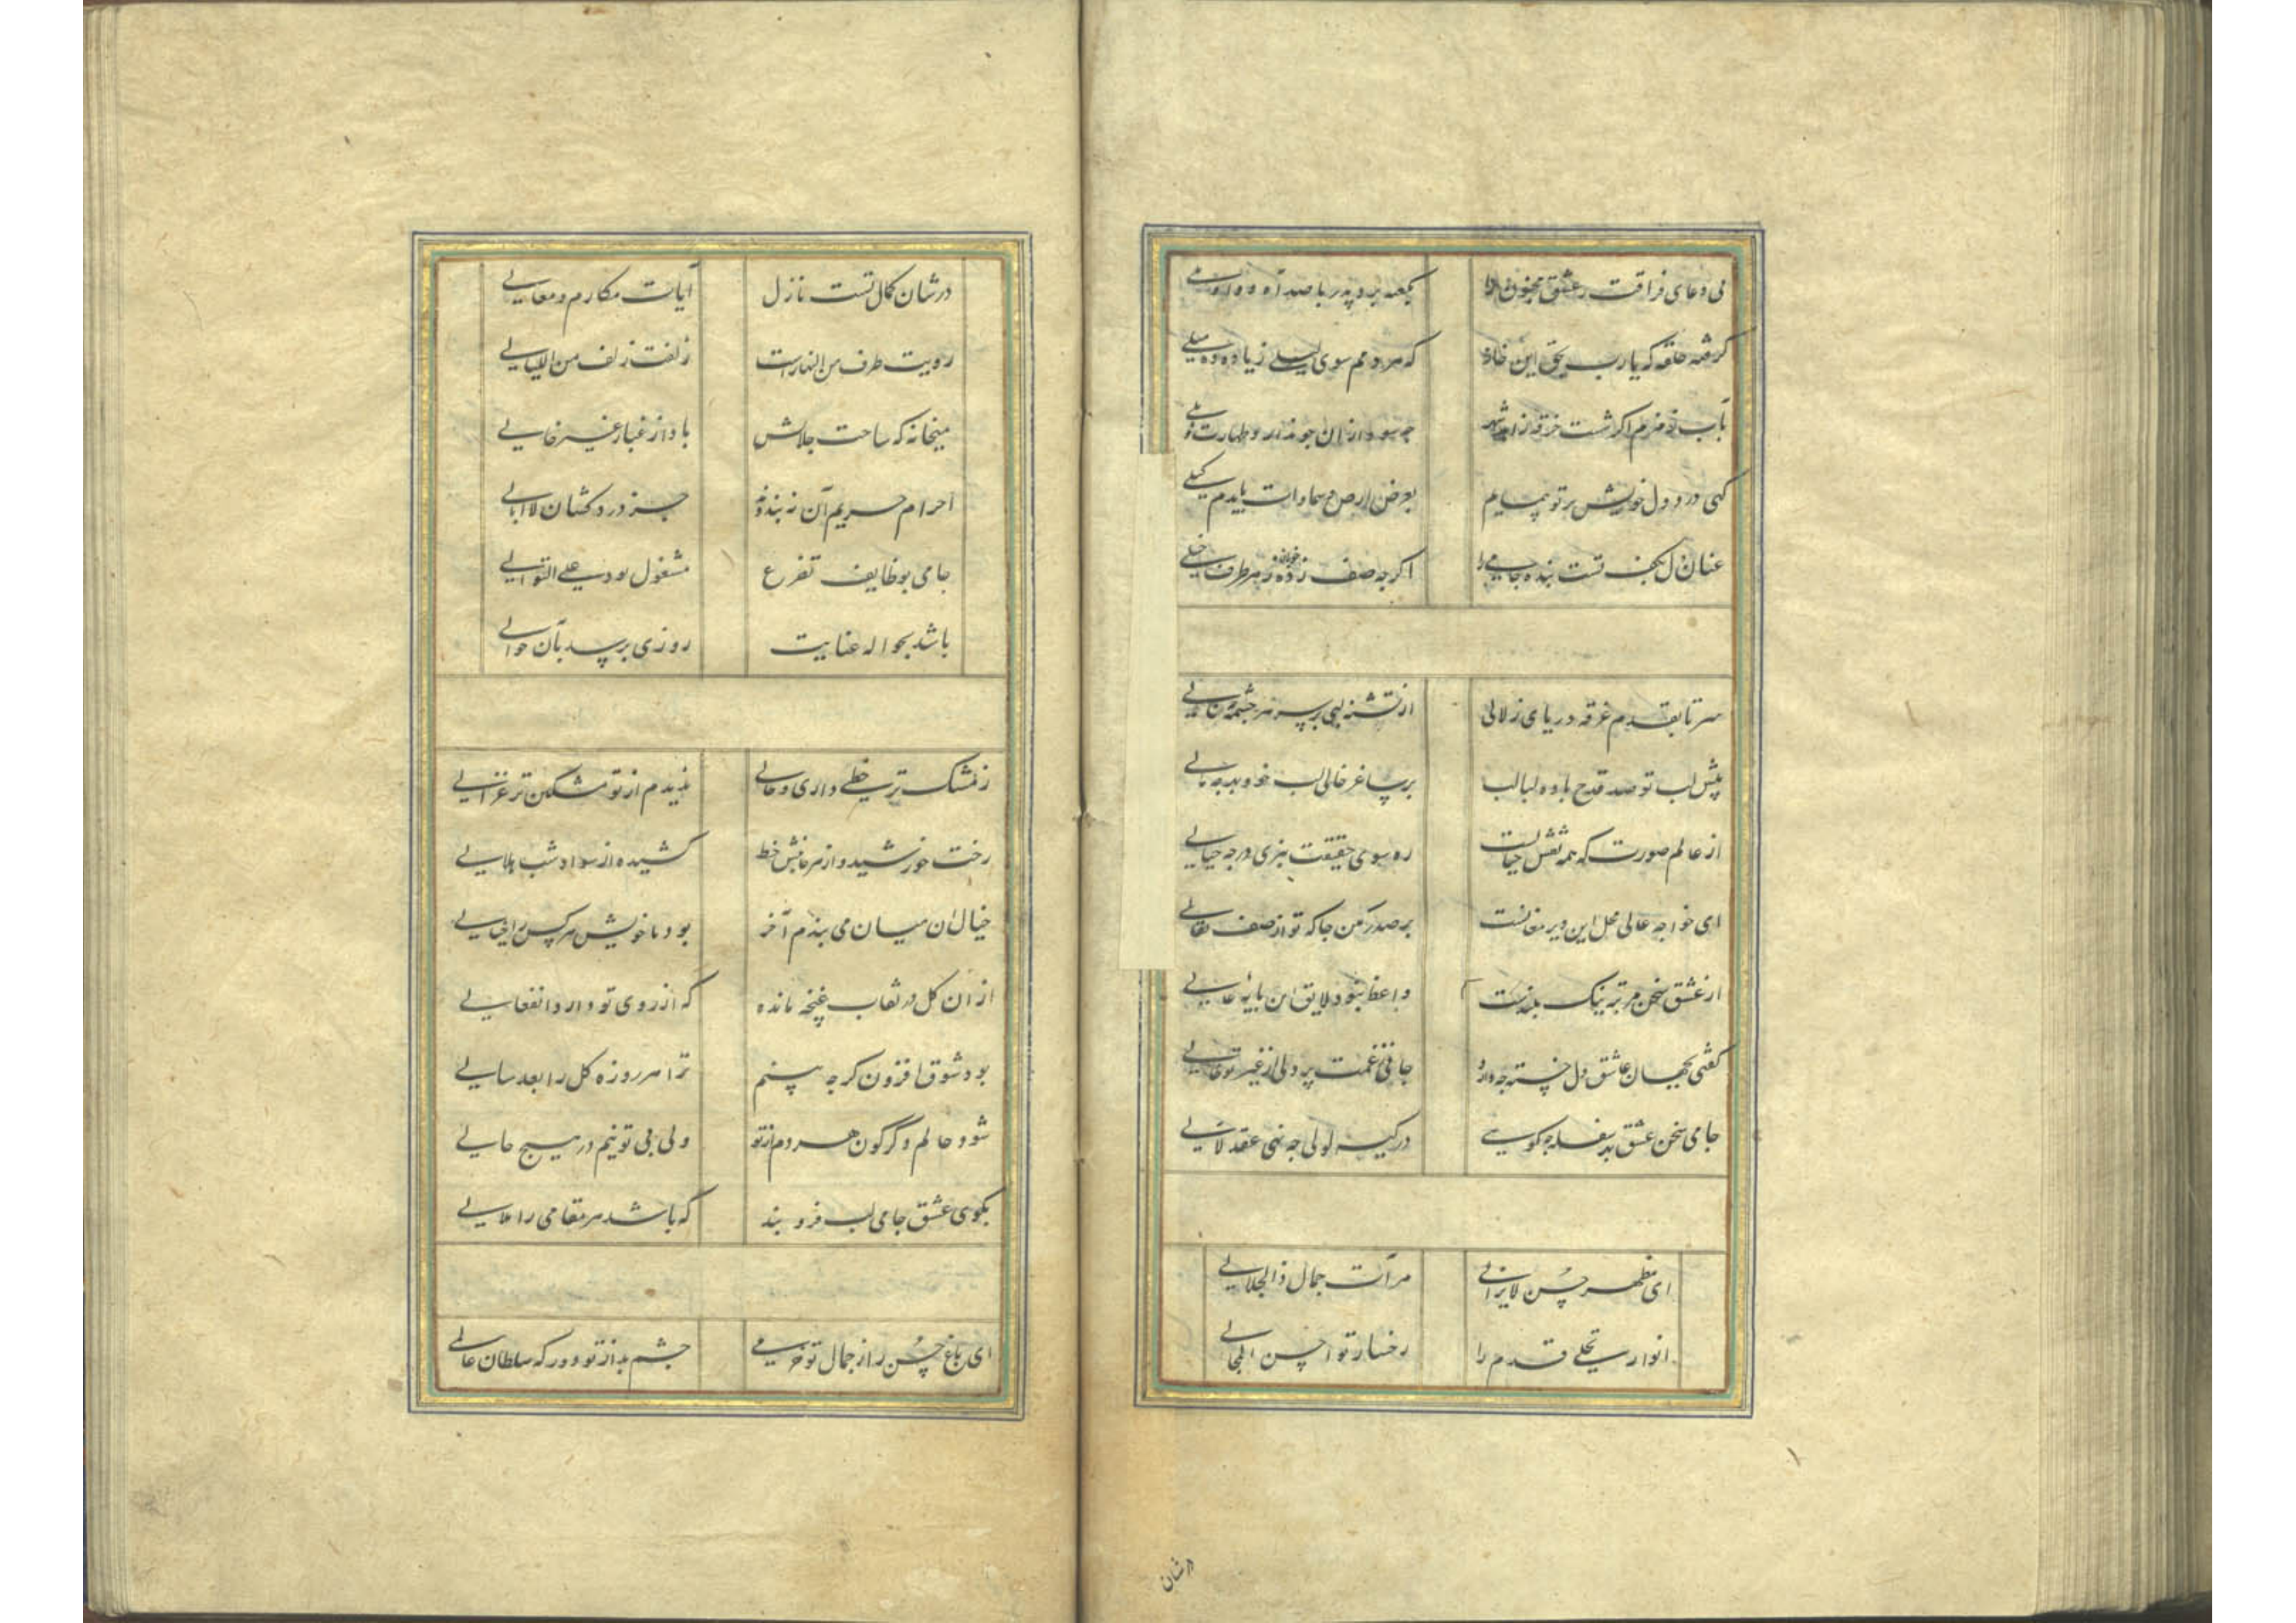 پی دعای فراقت ز عشق مجنون را بکعبه برد پدر با صد آه و واویلی
گرفته حلقه که یا رب بحق این خانه که هر دمم سوی لیلی زیاده ده میلی
بآب زمزم اگر شست خرقه زاهد شهر چه سود از آن چو ندارد طهارت ذیلی
کهی درد دل خویش بر تو پیمایم بعرض ارض و سماوات بایدم کیلی
عنان دل بکف تست بنده جامی را اگر چه صف زده خوبان ز هر طرف خیلی
سر تا بقدم غرقه دریای زلالی از تشنه لبی بر سر هر چشمه چه نالی
پیش لب تو صد قدح باده لبالب بر ساغر خالی لب خود بهر چه مالی
از عالم صورت که همه نقش خیالست ره سوی حقیقت نبری در چه خیالی
ای خواجه عالی محل این دیر مغانست بر صدر مکن جا که تو از صف نعالی
از عشق سخن مرتبه نیک بلندست واعظ نبود لایق این پایه عالی
گفتی بجهان عاشق دل خسته چه دارد جانی ز غمت پر دلی از غیر تو خالی
جامی سخن عشق بهر سفله چه گویی در کیسه لولی چه نهی عقد لآلی
ای مظهر حسن لایزالی مرآت جمال ذوالجلالی
انوار تجلی قدم را رخسار تو احسن المجالی
در شان
در شان کمال تست نازل آیات مکارم و معالی
رویت طرف من النهارست زلفت زلف من اللیالی
میخانه که ساحت جلالش باد از غبار غیر خالی
احرام حریم آن نبندند جز درد کشان لاابالی
جامی بوظایف تضرع مشغول بود علی التوالی
باشد بحواله عنایت روزی برسد بآن حوالی
ز مشک تر خطی داری و خالی ندیدم از تو مشکین تر غزالی
رخت خورشید و از هر جانبش خط کشیده از سواد شب هلالی
خیال آن میان می بندم آخر بود با خویش هر کس را خیالی
از آن گل در نقاب غنچه مانده که از روی تو دارد انفعالی
بود شوق افزون گر چه بینم ترا هر روزه گل را بعد سالی
شود حالم دگرگون هر دم از تو ولی بی تو نیم در هیچ حالی
بکوی عشق جامی لب فرو بند که باشد هر مقامی را مقالی
ای باغ حسن را ز جمال تو خرمی چشم بد از تو دور که سلطان عالمی